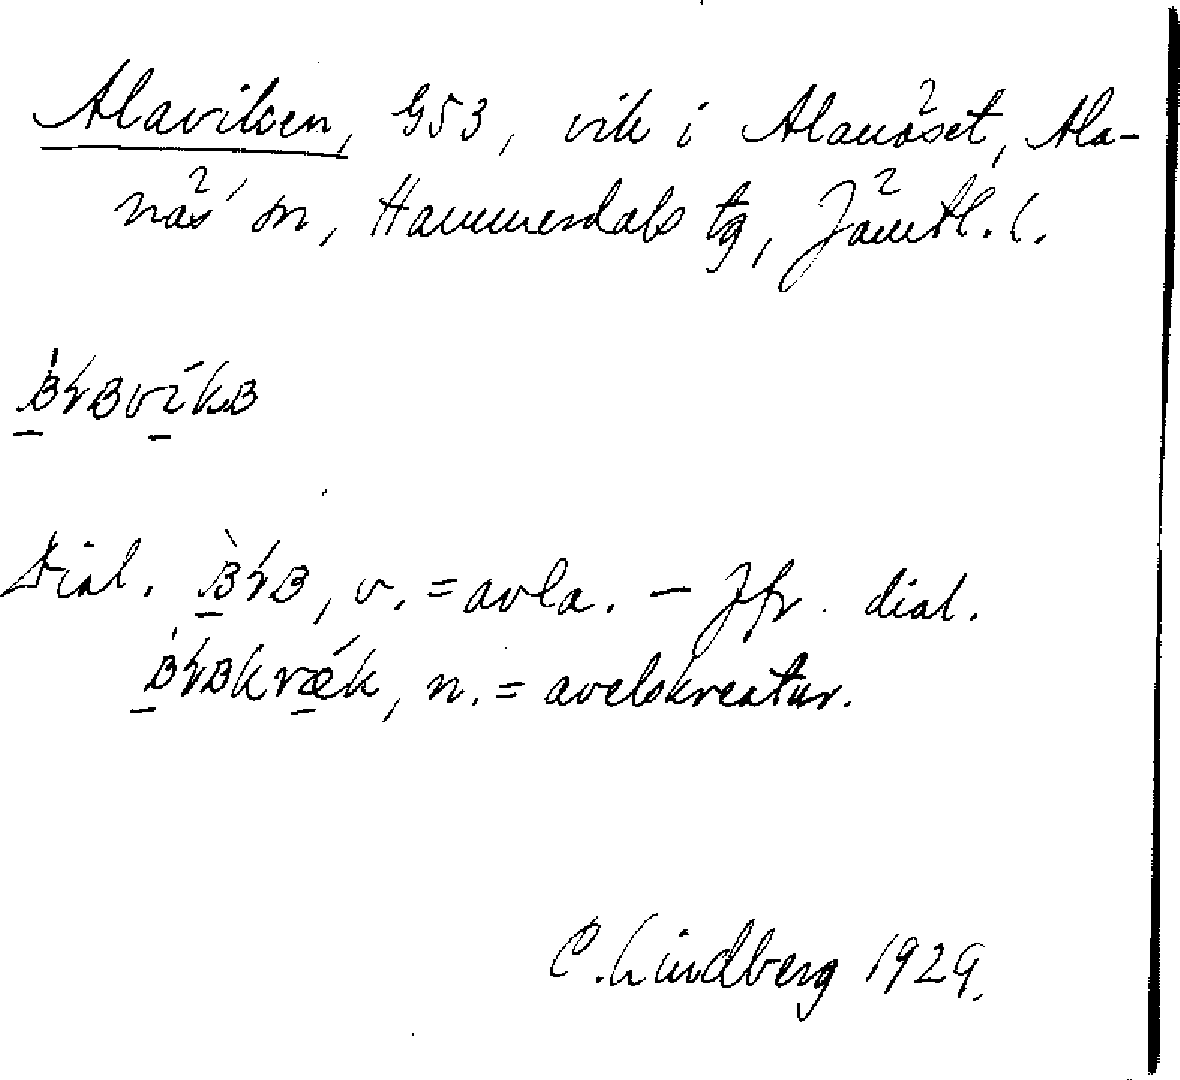 Alaviken, G53, vik i Alanäset, Ala-
näs sn, Hammerdals tg, Jämtl. l.
Dial. , v. = avla. – Jfr. dial.
, n. = avelskreatur.
C. Lindberg 1929.